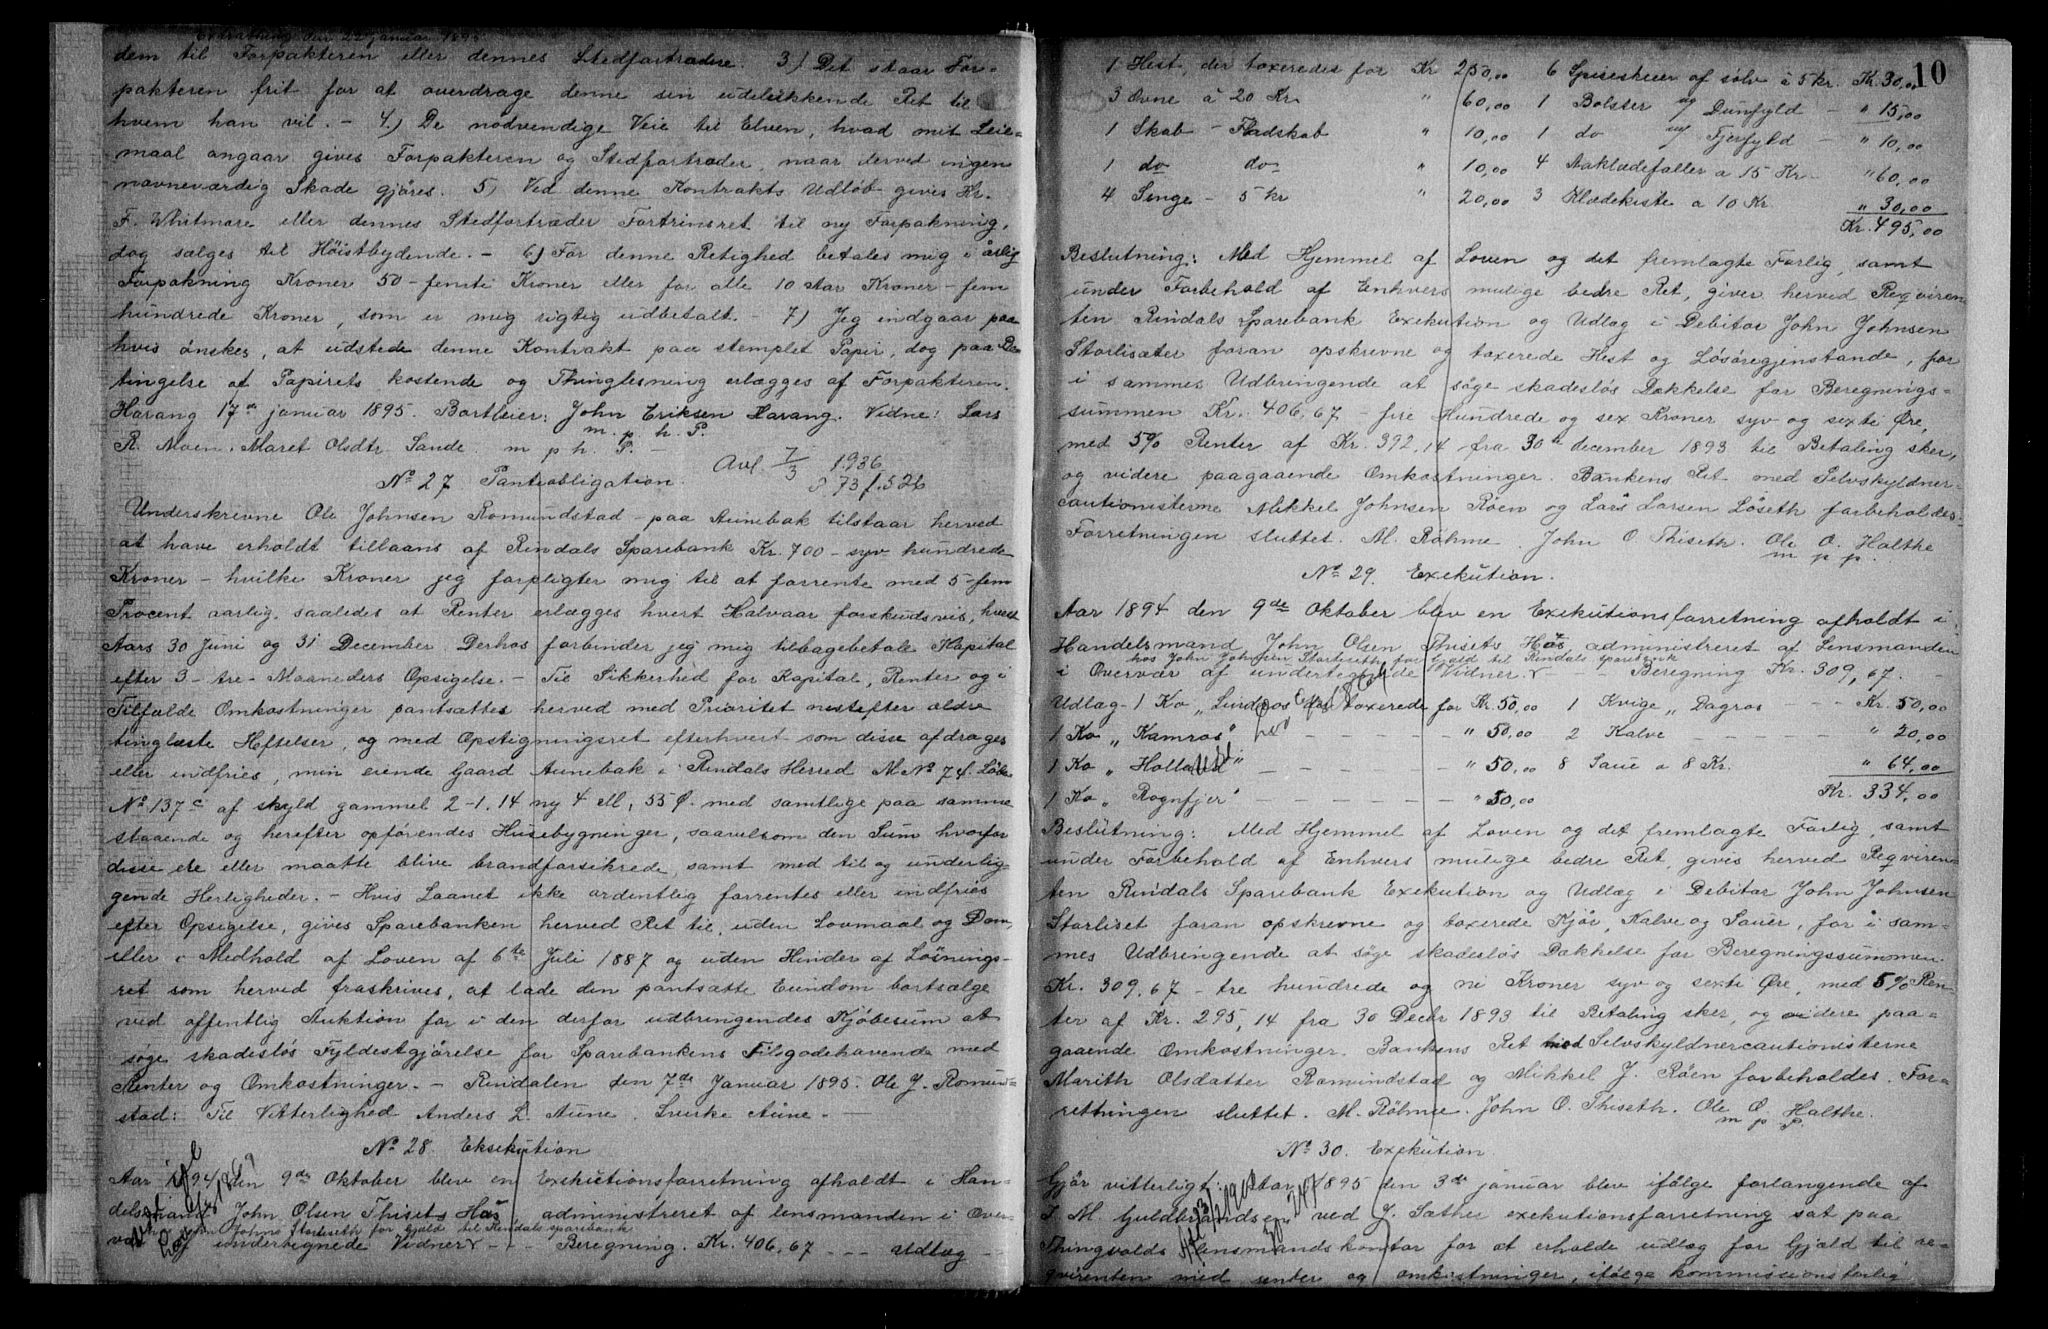 Extrathing den 22 januar 1895
dem til Forpakteren eller dennes Stedfortræder. 3.) Det staar For-
pakteren frit for at overdrage denne sin udelukkende Ret til
hvem han vil. - 4.) De nødvendige Veie til Elven, hvad mit Leie-
maal angaar gives Forpakteren og Stedfortræder, naar derved ingen
navneværdig Skade gjøres. 5) Ved denne Kontrakts Udløb gives Hr.
F. Whitmore eller dennes Stedfortræder Fortrinsret til ny Forpakning,
dog sælges til Høistbydende. - 6) For denne Retighed betales mig i årlig
Forpakning Kroner 50 - femti Kroner eller for alle 10 Aar Kroner - fem
hundrede Kroner, som er mig rigtig udbetalt. - 7) Jeg indgaar paa
hvis ønskes, at udstede denne Kontrakt paa stemplet Papir, dog paa Be-
tingelse at Papirets kostende og Thinglesning erlægges af Forpakteren.
Harang 17de januar 1895. Bortleier: John Eriksen Harang. Vidne: Lars
m. p. h. P.
R. Moen. Maret Olsdtr Sande. m p h. P. -
Avl. 7/3 1936
8 73 f. 526
No 27 Panteobligation.
Underskrevne Ole Johnsen Romundstad - paa Aunebak tilstaar herved
at have erholdt tillaans af Rindals Sparebank Kr. 700 - syv hundrede
Kroner - hvilke Kroner jeg forpligter mig til at forrente med 5 - fem
Procent aarlig saaledes at Renter erlægges hvert Halvaar forskudsvis, hvert
Aars 30 Juni og 31 December. Derhos forbinder jeg mig tilbagebetale Kapital
efter 3 - tre - Maaneders Opsigelse. - Til Sikkerhed for Kapital, Renter og i
Tilfælde Omkostninger pantsættes herved med Prioritet nestefter ældre
tinglæste Heftelser, og med Opstigningsret efterhvert som disse afdrages
eller indfries, min eiende Gaard Aunebak i Rindals Herred M No 74. Løbe
No 137c af skyld gammel 2-1.14 ny 4 M, 55 Ø. med samtlige paa samme
staaende og herefter opførendes Husebygninger, saavelsom den Sum hvorfor
disse ere eller maatte blive brandforsikrede, samt med til og underlig-
gende Herligheder. - Hvis Laanet ikke ordentlig forrentes eller indfries
efter Opsigelse, gives Sparebanken herved Ret til, uden Lovmaal og Dom,
eller i Medhold af Loven af 6te Juli 1887 og uden Hinder af Løsnings-
ret som herved fraskrives, at lade den pantsatte Eiendom bortsælge
ved offentlig Auktion for i den derfor udbringendes Kjøbesum at
søge skadesløs Fyldestgjørelse for Sparebankens Tilgodehavende med
Renter og Omkostninger. - Rindalen den 7de Januar 1895. Ole J. Romund-
stad: Til Vitterlighed Anders L. Aune. Sverke Aune. -
No 28. Eksekution
Aar 1894 den 9de Oktober blev en Exekutionsforretning afholdt i Han-
delsmand John Olsen Thisets Hús administreret af lensmanden i Over-
hos John Johns Storliseth for Gjæld til Rindals sparebank
vær af undertegnede Vidner. - - Beregning. Kr. 406,67 - - - Udlæg -
10
1 Hest, der taxeredes for Kr 250,00 6 Spiseskeer af sølv á 5 kr. Kr. 30,00
3 Ovne á 20 Kr. " 60,00 1 Bolster m/ Dunfyld - " 15,00
1 Skab - Fladskab " 10,00 1 do m/ Fjerfyld - " 10,00
1 do do " 10,00 4 Aaklædefaller a 15 Kr. - " 60,00
4 Senge - 5 kr " 20,00 3 Klædekiste a 10 Kr " 30,00
Kr. 495,00
Beslutning: Med Hjemmel af Loven og det fremlagte Forlig, samt
under Forbehold af Enhvers mulige bedre Ret, giver herved Reqviren-
ten Rindals Sparebank Exekution og Udlæg i Debitor John Johnsen
Storlisæter foran opskrevne og taxerede Hest og Løsøregjenstande, for
i sammes Udbringende at søge skadesløs Dækkelse for Beregnings-
summen Kr. 406,67 - fire Hundrede og sex Kroner syv og sexti Øre,
med 5% Renter af Kr. 392,14 fra 30te december 1893 til Betaling sker,
og videre paagaaende Omkostninger. Bankens Ret med Selvskyldner-
cautionisterne Mikkel Johnsen Røen og Lars Larsen Løseth forbeholdes.
Forretningen sluttet. M. Röhme. John O. Thiseth. Ole O. Halthe
m p p.
No 29. Exekution.
Aar 1894 den 9de Oktober blev en Exekutionsforretning afholdt i
Handelsmand John Olsen Thisets Hús administreret af Lensmanden
hos John Johnsen Storliseth for Gjæld til Rindals sparebank
i Overvær af undertegnede Vidner. - - - Beregning Kr. 309,67. -
Udlæg - 1 Ko "Lindros" der taxerede for Kr. 50,00 1 Kvige "Dagros - - - Kr. 50,00
1 Ko "Kamros" - - - - " 50,00 2 Kalve - - - - " 20,00
1 Ko "Holland" - - - - " 50,00 8 Saue a 8 Kr. " 64,00
1 Ko "Rognfjer" - - - - " 50,00 Kr. 334,00
Beslutning: Med Hjemmel af Loven og det fremlagte Forlig, samt
under Forbehold af Enhvers mulige bedre Ret, givis herved Reqviren-
ten Rindals Sparebank Exekution og Udlæg i Debitor John Johnsen
Storliset foran opskrevne og taxerede Kjør, Kalve og Sauer, for å i sam-
mes Udbringende at søge skadesløs Dækkelse for Beregningssummen
Kr. 309,67 - tre hundrede og ni Kroner syv og sexti Øre, med 5% Ren-
ter af Kr. 295,14 fra 30 Decbr 1893 til Betaling sker, og videre paa-
gaaende Omkostninger. Bankens Ret med Selvskyldnercautionisterne
Marith Olsdatter Romundstad og Mikkel J. Röen forbeholdes. For-
retningen sluttet. M. Röhme. John O. Thiseth. Ole O. Halthe.
m p p.
No 30. Exekution.
Gjør vitterligt: Aar 1895 den 3de januar blev ifølge forlangende af
J. M. Guldbrandsen ved J. Sæther exekutionsforretning sat paa
Thingvolds lensmandskontor for at erholde udlæg for Gjæld til re-
qvirenten med renter og omkostninger, ifølge kommissionsforlig